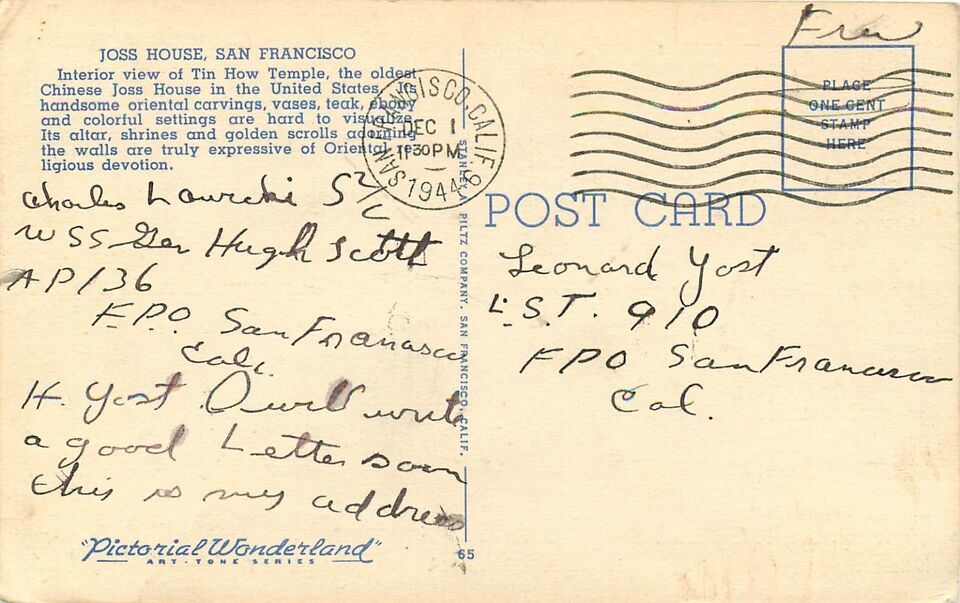 JOSS HOUSE, SAN FRANCISCO
Interior view of Tin How Temple, the oldest
Chinese Joss House in the United States. Its
handsome oriental carvings, vases, teak, ebony
and colorful settings are hard to visualize.
Its altar, shrines and golden scrolls adorning
the walls are truly expressive of Oriental re-
ligious devotion.
Charles S 2/C
USS Gen Hugh Scott
AP 136
F.P.O. San Franasco
Cal.
H. Yost. I will write
a good Letter soon
this is my address
"Pictorial Wonderland"
ART-TONE SERIES
SAN FRANCISCO, CALIF.
DEC 1
1130 PM
1944
STANLEY A. PILTZ COMPANY, SAN FRANCISCO, CALIF.
65
Free
PLACE
ONE CENT
STAMP
HERE
POST CARD
Leonard Yost
L.S.T. 910
FPO San Francisco
Cal.